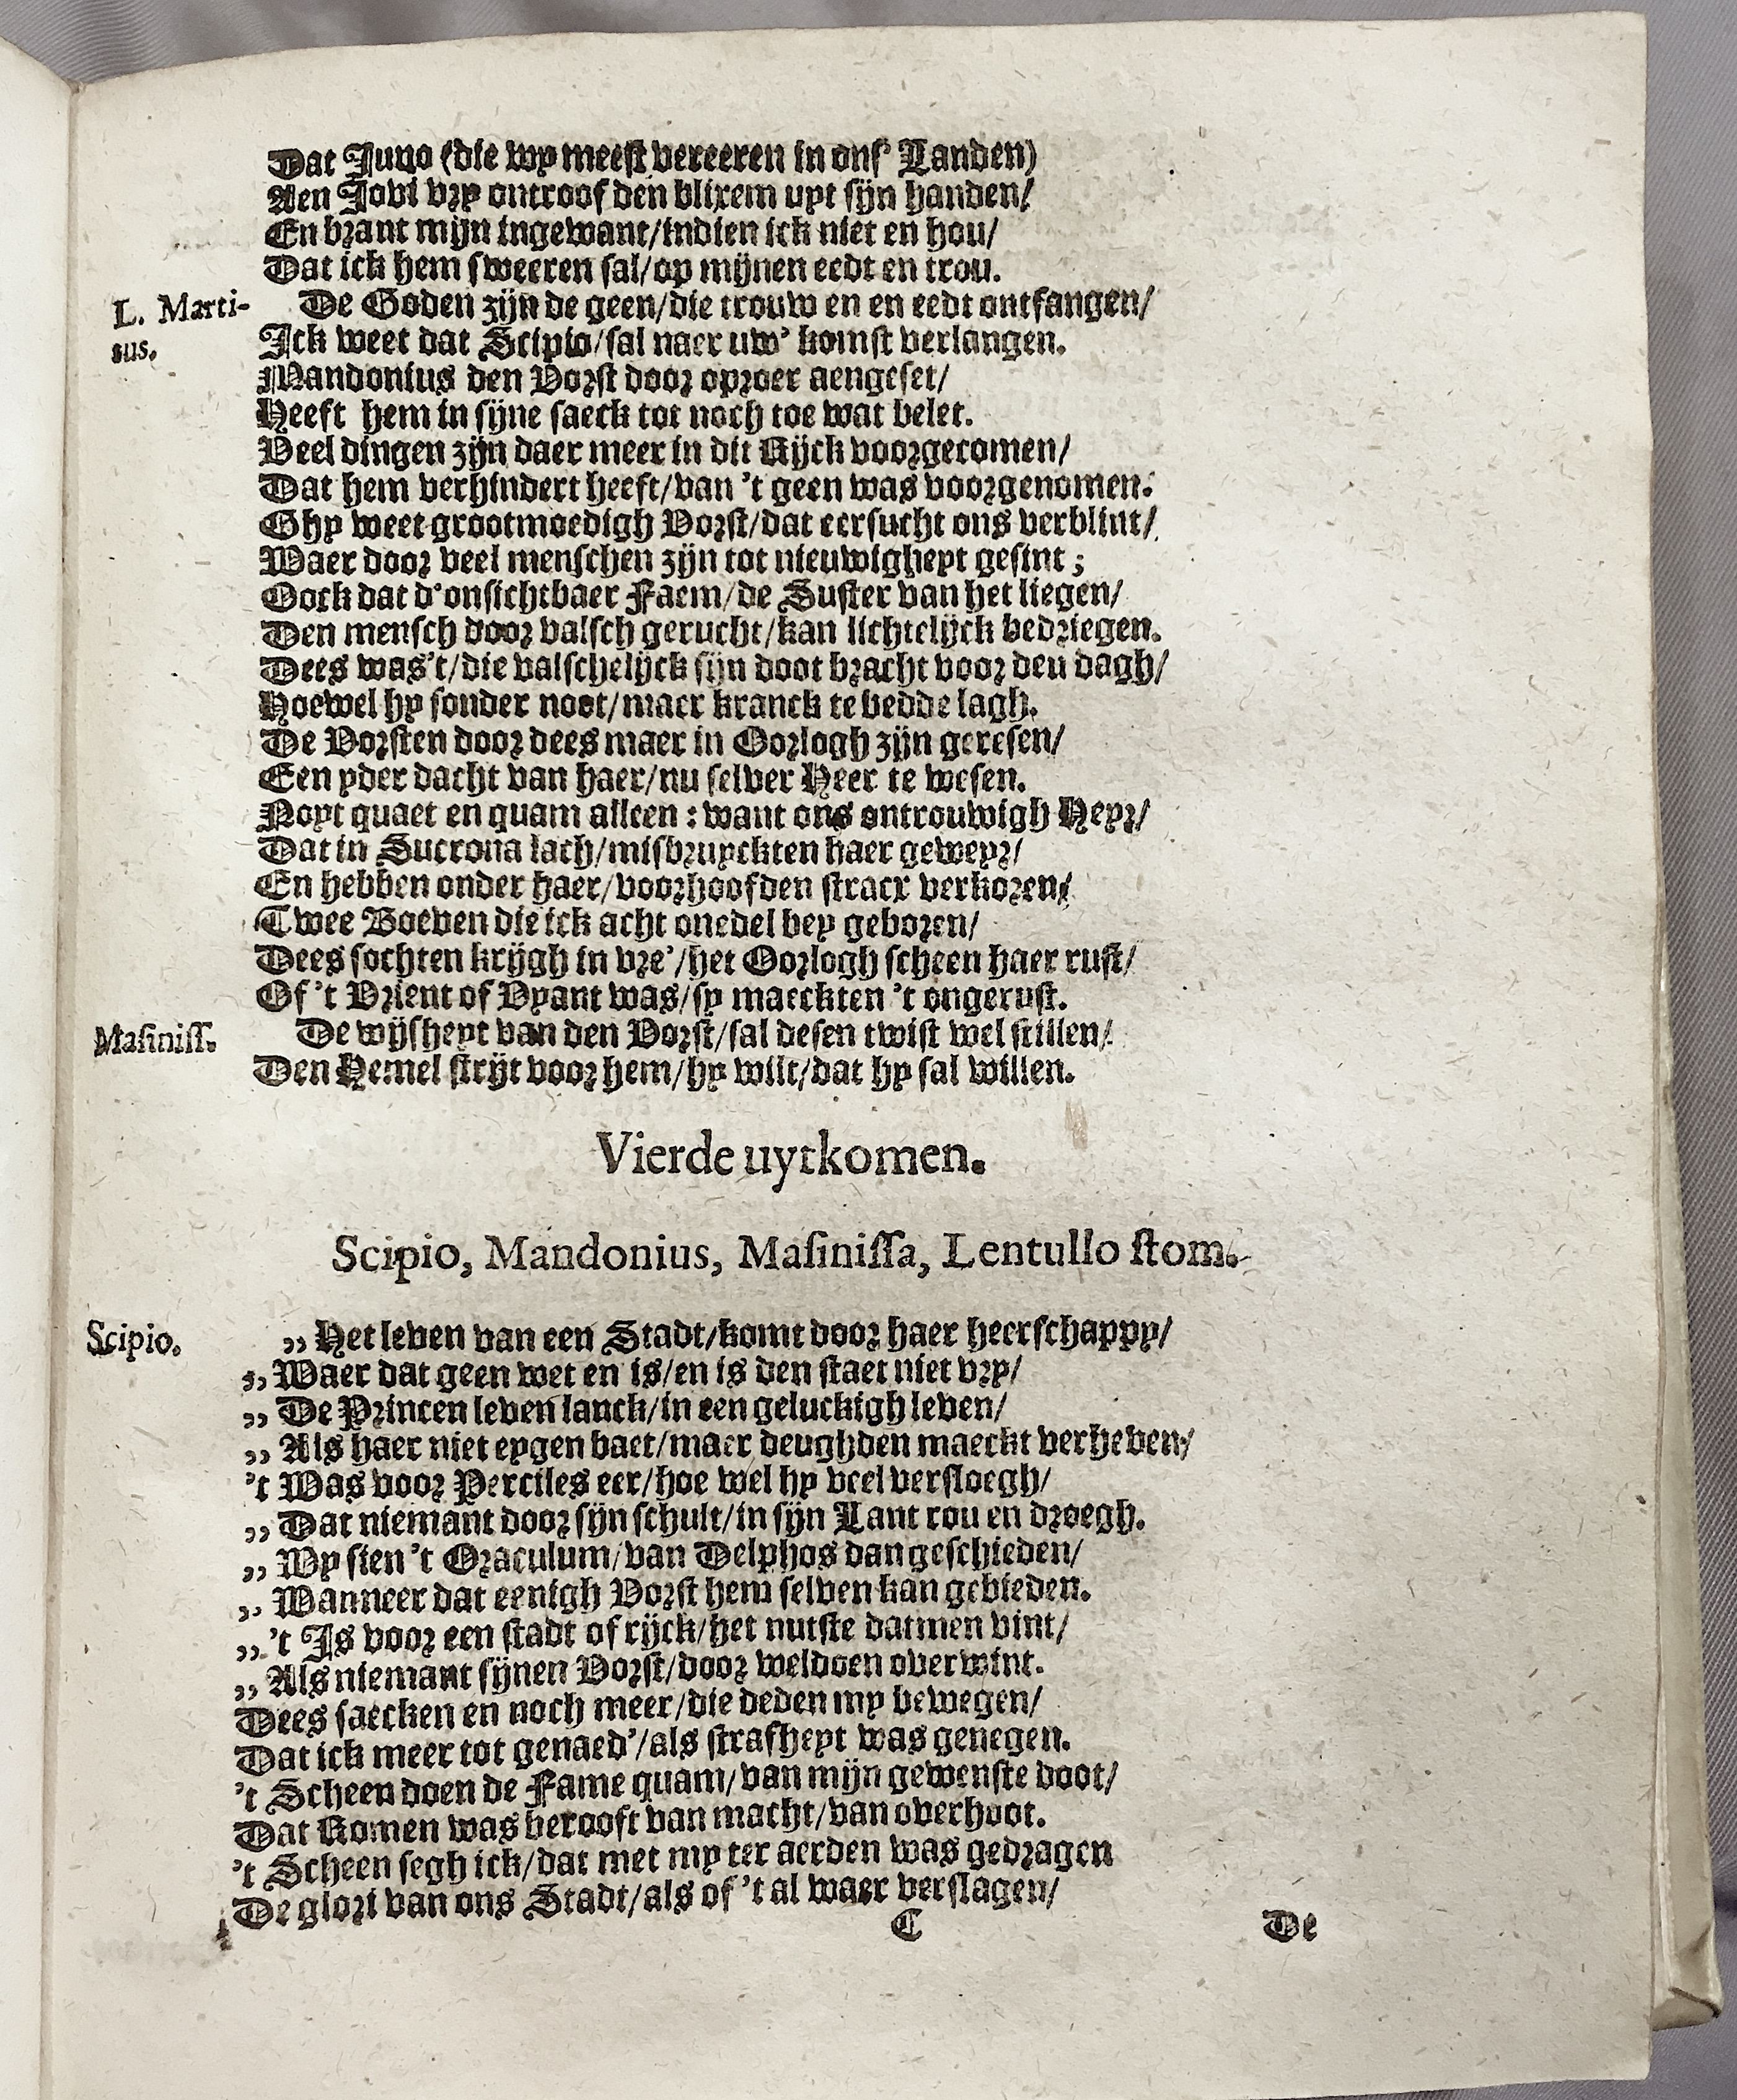 Dat Juno (die wy meest vereeren in ons' Landen)
Aen Jovi vry ontroof den blixem uyt sijn handen/
En brant mijn ingewant/indien ick niet en hou/
Dat ick hem sweeren sal/op mijnen eedt en trou.
L. Marti- De Goden zijn de geen/die trouw en en eedt ontfangen/
sus. Ick weet dat Scipio/sal naer uw' komst verlangen.
Mandonius den Vorst door oproer aengeset/
Heeft hem in sijne saeck tot noch toe wat belet.
Veel dingen zijn daer meer in dit Rijck voorgecomen/
Dat hem verhindert heeft/van 't geen was voorgenomen.
Ghy weet grootmoedigh Vorst/dat eersucht ons verblint/
Waer door veel menschen zijn tot nieuwigheyt gesint;
Oock dat d'onsichtbaer Faem/de Suster van het liegen/
Den mensch door valsch gerucht/kan lichtelijck bedriegen.
Dees was't/die valschelijck sijn doot bracht voor den dagh/
Hoewel hy sonder noot/maer kranck te bedde lagh.
De Vorsten door dees maer in Oorlogh zijn geresen/
Een yder dacht van haer/nu selver Heer te wesen.
Noyt quaet en quam alleen: want ons ontrouwigh Heyr/
Dat in Sucrona lach/misbruyckten haer geweyr/
En hebben onder haer/voorhoofden stracx verkoren/
Twee Boeven die ick acht onedel bey geboren/
Dees sochten krijgh in vre'/het Oorlogh scheen haer rust/
Of 't Vrient of Vyant was/sy maeckten 't ongerust.
Masiniss. De wijsheyt van den Vorst/sal desen twist wel stillen/
Den Hemel strijt voor hem/hy wilt/dat hy sal willen.
Vierde uytkomen.
Scipio, Mandonius, Masinissa, Lentullo stom.
Scipio. ,, Het leven van een Stadt/komt door haer heerschappy/
,, Waer dat geen wet en is/en is den staet niet vry/
,, De Princen leven lanck/in een geluckigh leven/
,, Als haer niet eygen baet/maer deughden maeckt verheven/
't Was voor Perciles eer/hoe wel hy veel versloegh/
,, Dat niemant door sijn schult/in sijn Lant rou en droegh.
,, Wy sien 't Oraculum/van Delphos dan geschieden/
,, Wanneer dat eenigh Vorst hem selven kan gebieden.
,, 't Is voor een stadt of rijck/het nutste datmen vint/
,, Als niemant sijnen Vorst/door weldoen overwint.
Dees saecken en noch meer/die deden my bewegen/
Dat ick meer tot genaed'/als strafheyt was genegen.
't Scheen doen de Fame quam/van mijn gewenste doot/
Dat Romen was berooft van macht/van overhoot.
't Scheen segh ick/dat met my ter aerden was gedragen
De glori van ons Stadt/als of 't al waer verslagen/
C De